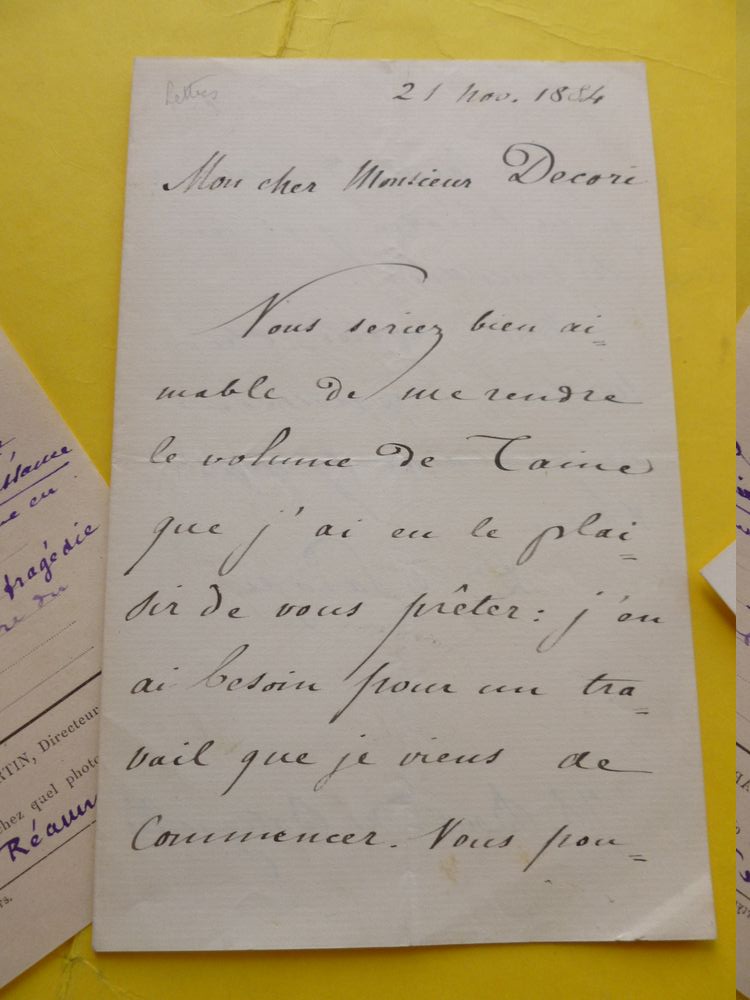 Lettres
21 nov. 1884
Mon cher Monsieur Decori
Vous seriez bien ai=
mable de me rendre
le volume de Taine
que j'ai eu le plai=
sir de vous prêter: j'en
ai besoin pour un tra=
vail que je viens de
Commencer. Vous pou=
tragédie
RTIN, Directeur
chez quel photo
Réaum